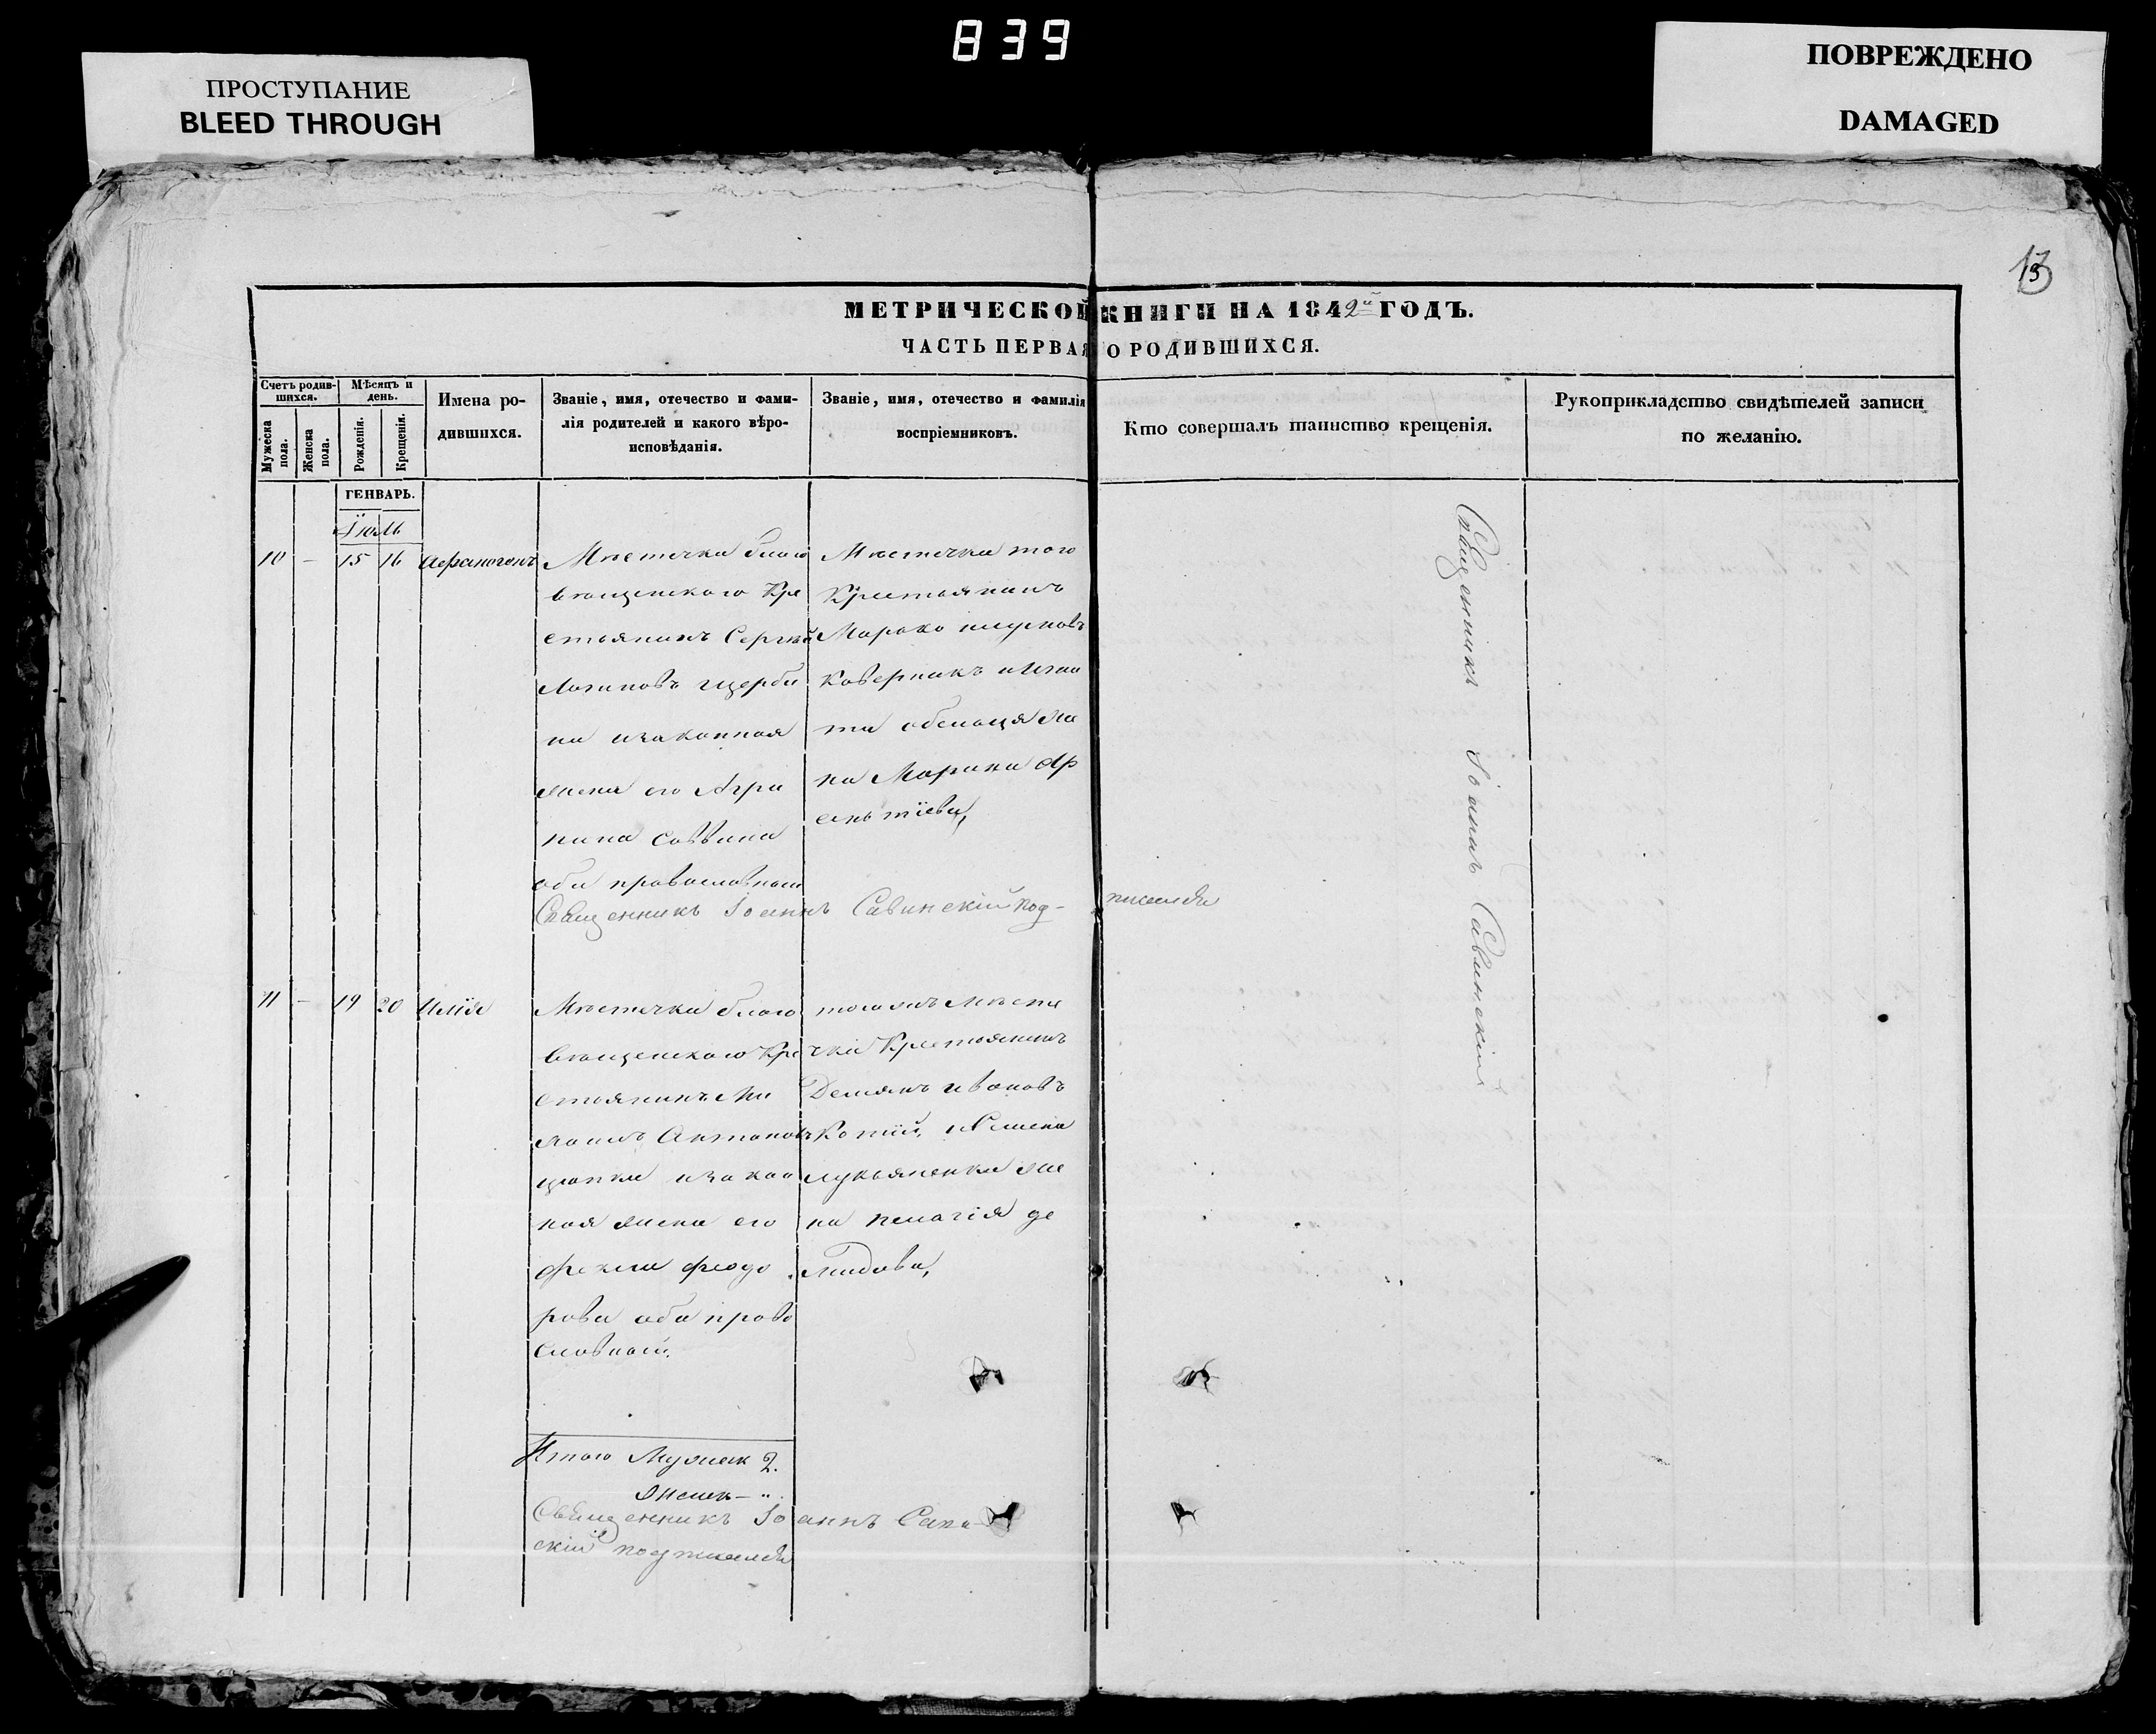 839
ПРОСТУПАНИЕ
BLEED THROUGH
ПОВРЕЖДЕНО
DAMAGED
13
МЕТРИЧЕСКОЙ КНИГИ НА 1842й ГОДЪ.
ЧАСТЬ ПЕРВАЯ О РОДИВШИХСЯ.
Счетъ родив-
шихся.
Мужеска пола.
Женска пола.
Мѣсяцъ и
день.
Рожденія.
Крещенія.
Имена ро-
дившихся.
Званіе, имя, отечество и фами-
лія родителей и какого вѣро-
исповѣданія.
Званіе, имя, отечество и фамилія
воспріемниковъ.
Кто совершалъ таинство крещенія.
Рукоприкладство свидѣтелей записи
по желанію.
ГЕНВАРЬ.
Іюль
10 – 15 16 Афиногенъ
Местечка благо
вещенского Кре
стьянинъ Сергѣй
Логиновъ щерби
на изаконная
жена его Агри
пина Саввина
оба православныи
Местечка того
Крестьянинъ
Марко
Коверникъ
жи
на Марина
ентіева,
Священникъ Іоаннъ Савинскій под-
писался
Священникъ Іоаннъ Савинскій
11 – 19 20 Илія
Местечка благо
вещенского Кре
стьянинъ Ми
хаилъ Антоновъ
цапка изакон
ная жена его
фекла феодо
рова оба право
славныи.
того жъ Месте
чка Крестьянинъ
Демянъ ивановъ
лукьяненка же
на пелагія де
мидова,
Итого Мужеск 2.
Женск – "
Священникъ Іоаннъ Сави
скій подписался